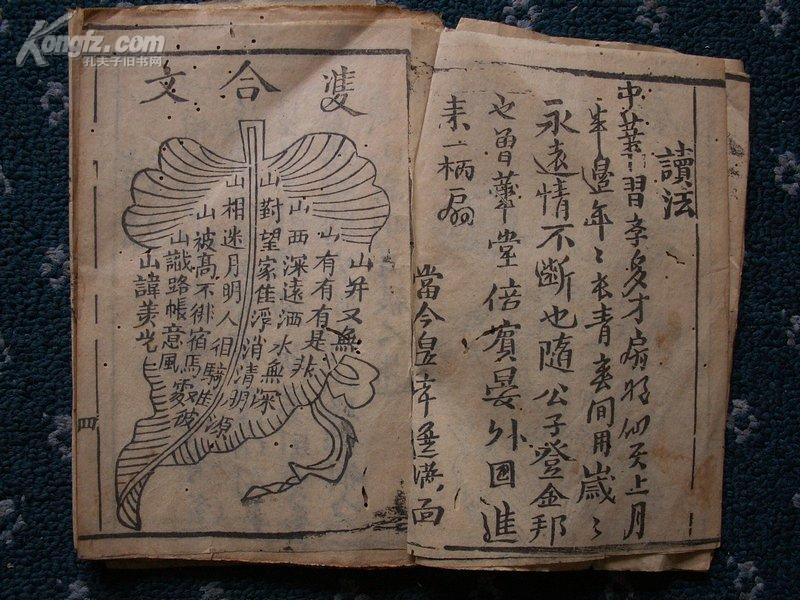 Kongfz.com
孔夫子旧书网
讀法
中葉習李多才扇 仙天上月
半邊年〻長青 間用歲〻
永遠情不斷也隨公子登金邦
也曾華堂倍賓晏外囯進
耒一柄扇
當今皇 面
雙合文
山井又無
山有有有是非
山西深遠洒水無深
山對望家隹浮消清明
山相迷月明人徊騎 源
山被高不徘宿馬
山識路帳意風 被
山諱美
四